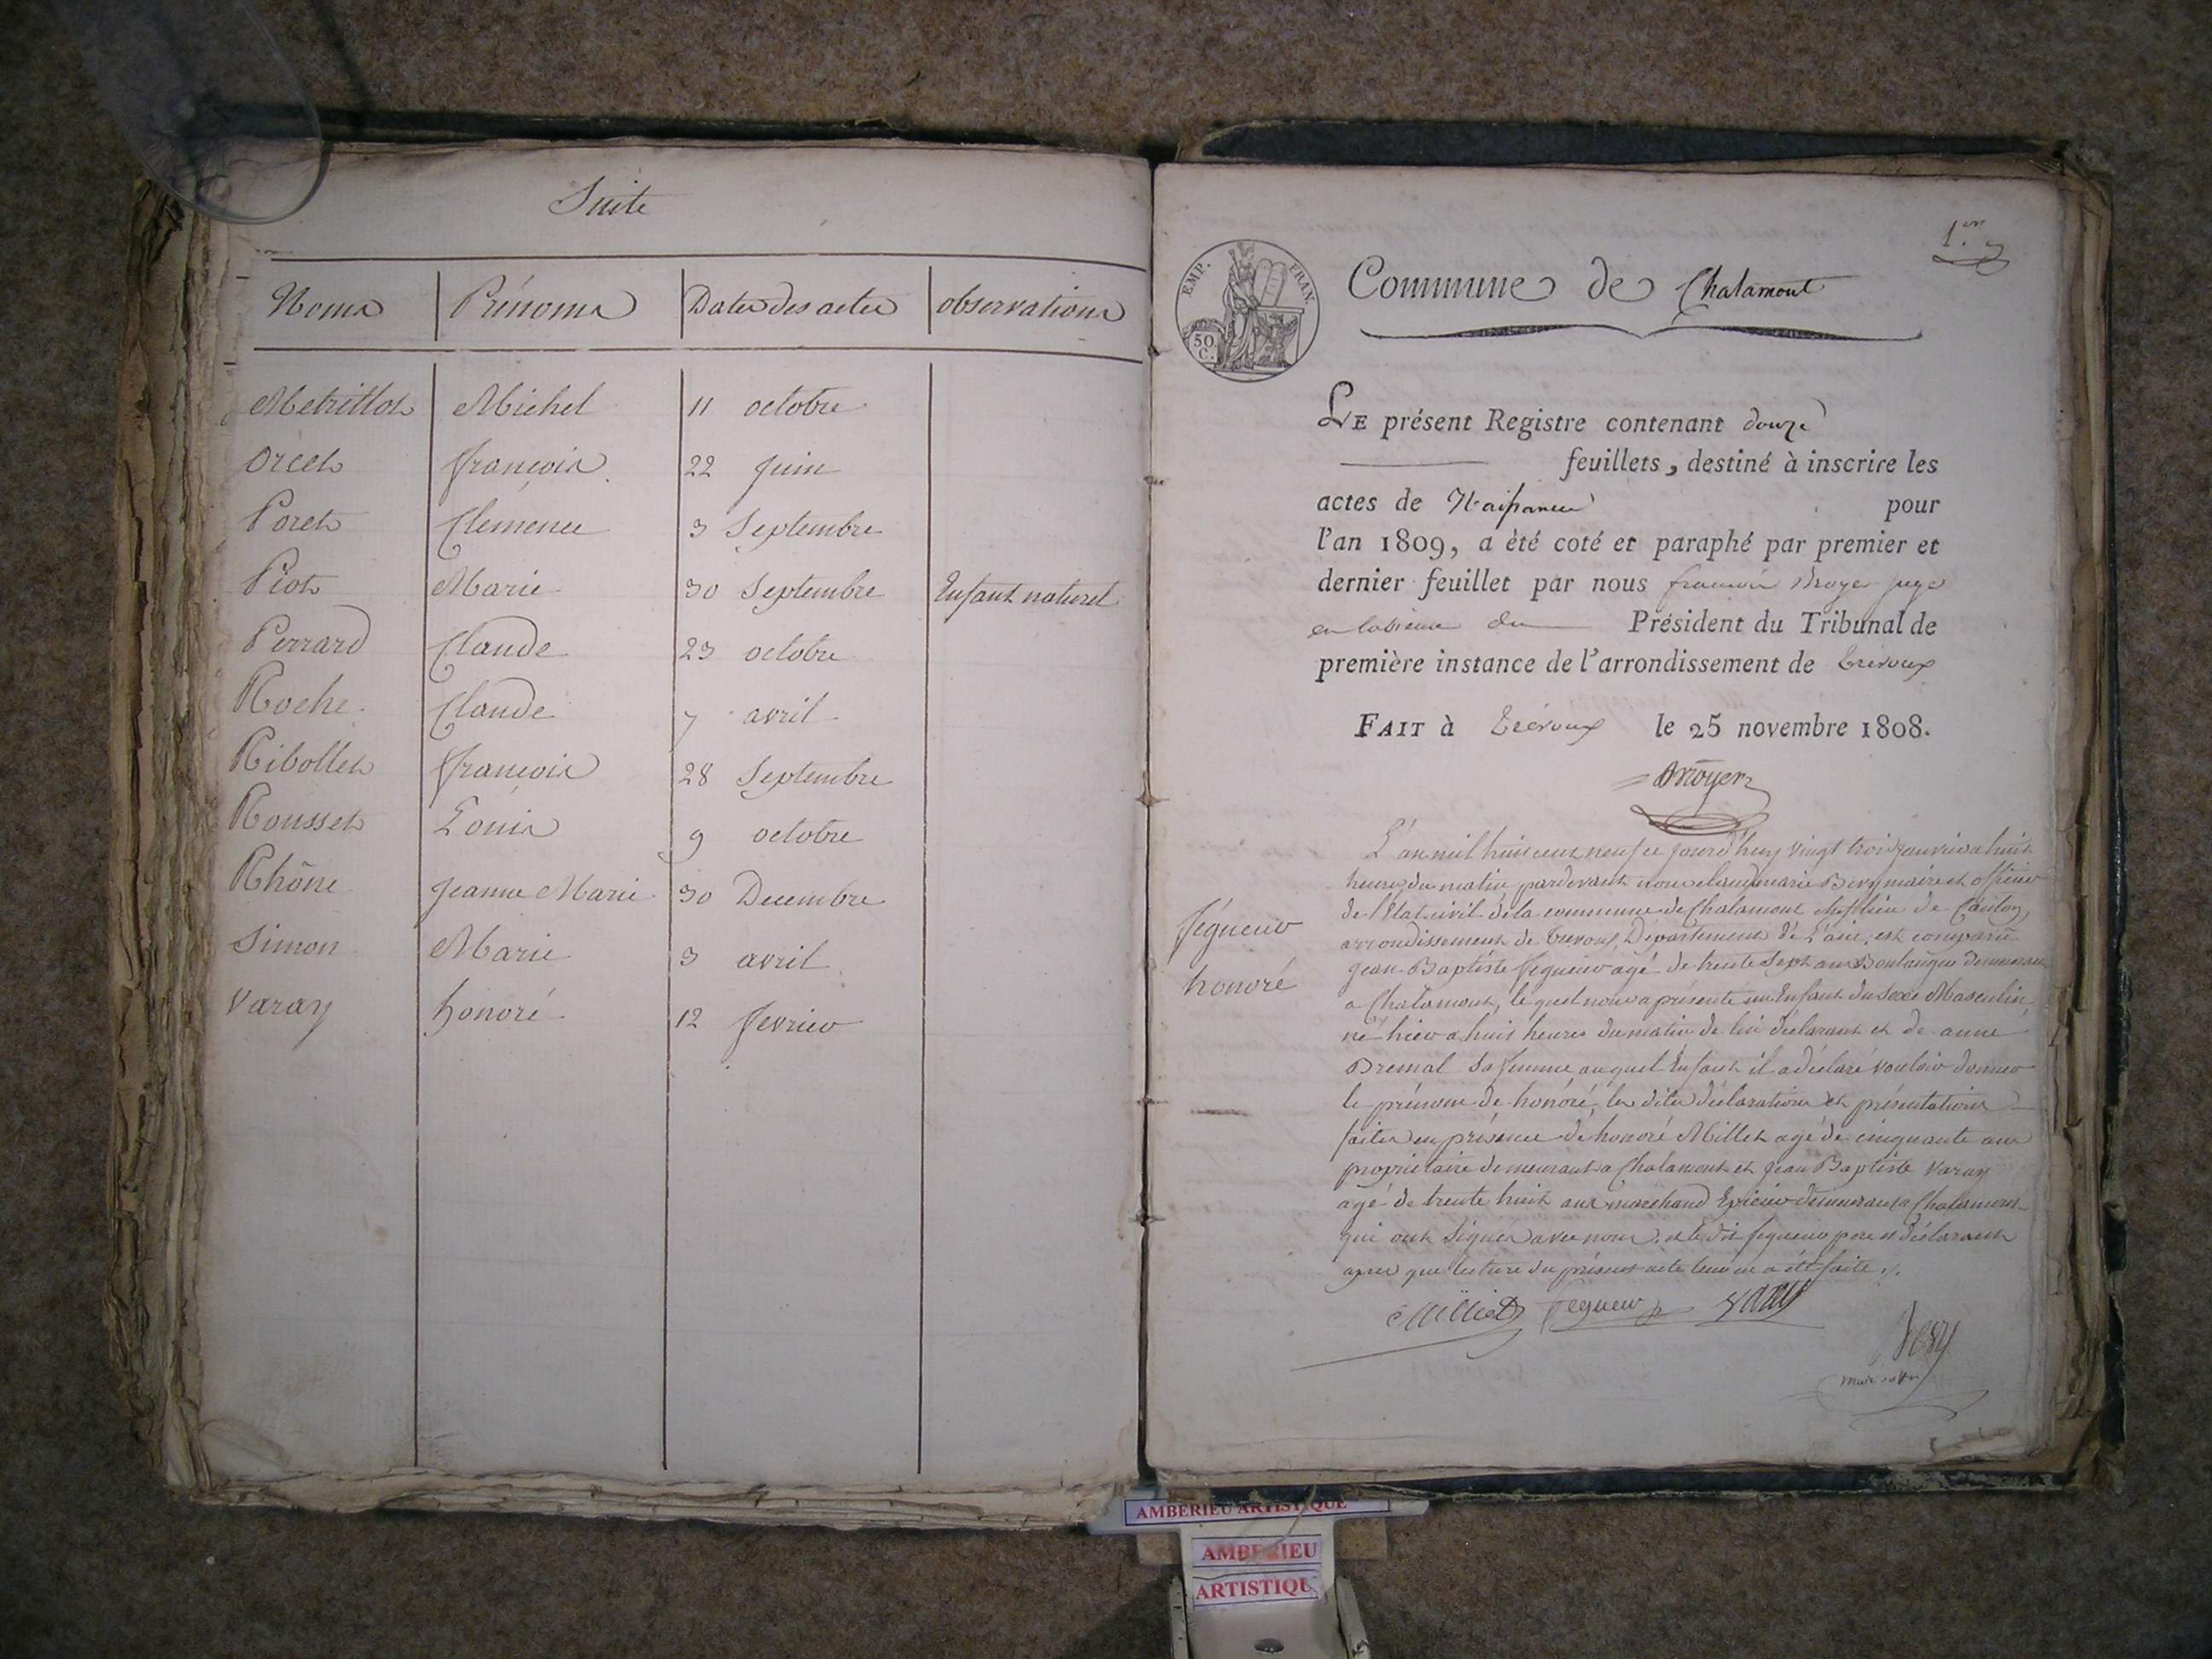 Suite
Noms Prénoms Dates des actes observations
Metrillot Michel 11 octobre
Orcet françois 22 Juin
Poret Clemence 3 Septembre
Piot Marie 30 Septembre Enfant naturel
Perrard Claude 23 octobre
Roche Claude 7 avril
Ribollet françois 28 Septembre
Rousset Louis 9 octobre
Rhône Jeanne Marie 30 Decembre
Simon Marie 3 avril
Varay honoré 12 fevrier
1.er
EMP. FRAN.
50 C.
Commune de Chalamont
LE présent Registre contenant douze
feuillets, destiné à inscrire les
actes de Naissance pour
l'an 1809, a été coté et paraphé par premier et
dernier feuillet par nous françois juge
en du Président du Tribunal de
première instance de l'arrondissement de trévoux
FAIT à trévoux le 25 novembre 1808.
fégueur
honoré
L'an mil huit cent neuf ce jourd'huy vingt trois janvier a huit
heures du matin pardevant nous claude marie Bery maire et officier
de l'Etat civil de la commune de Chalamont chef lieu de Canton,
arrondissement de trevoux, Département de L'ain, est comparu
jean Baptiste fegueur agé de trente Sept ans Boulanger demeurant
a Chalamont, le quel nous a présenté un Enfant du Sexe Masculin
né hier a huit heures du matin de lui déclarant et de anne
Bremal Sa femme auquel Enfant il a déclaré vouloir donner
le prénom de honoré, les dites déclaration et présentation
faites en présence de honoré Millet agé de cinquante ans
propriétaire demeurant a Chalamont et jean Baptiste Varay
agé de trente huit ans marchand Epicier demeurant a Chalamont
qui ont Signés avec nous, et le dit fegueur pere et déclarant
apres que lecture du présent acte leur en a été faite ./.
Milliet fegueur varay
Bery
maire
AMBERIEU ARTISTIQUE
AMBERIEU
ARTISTIQU